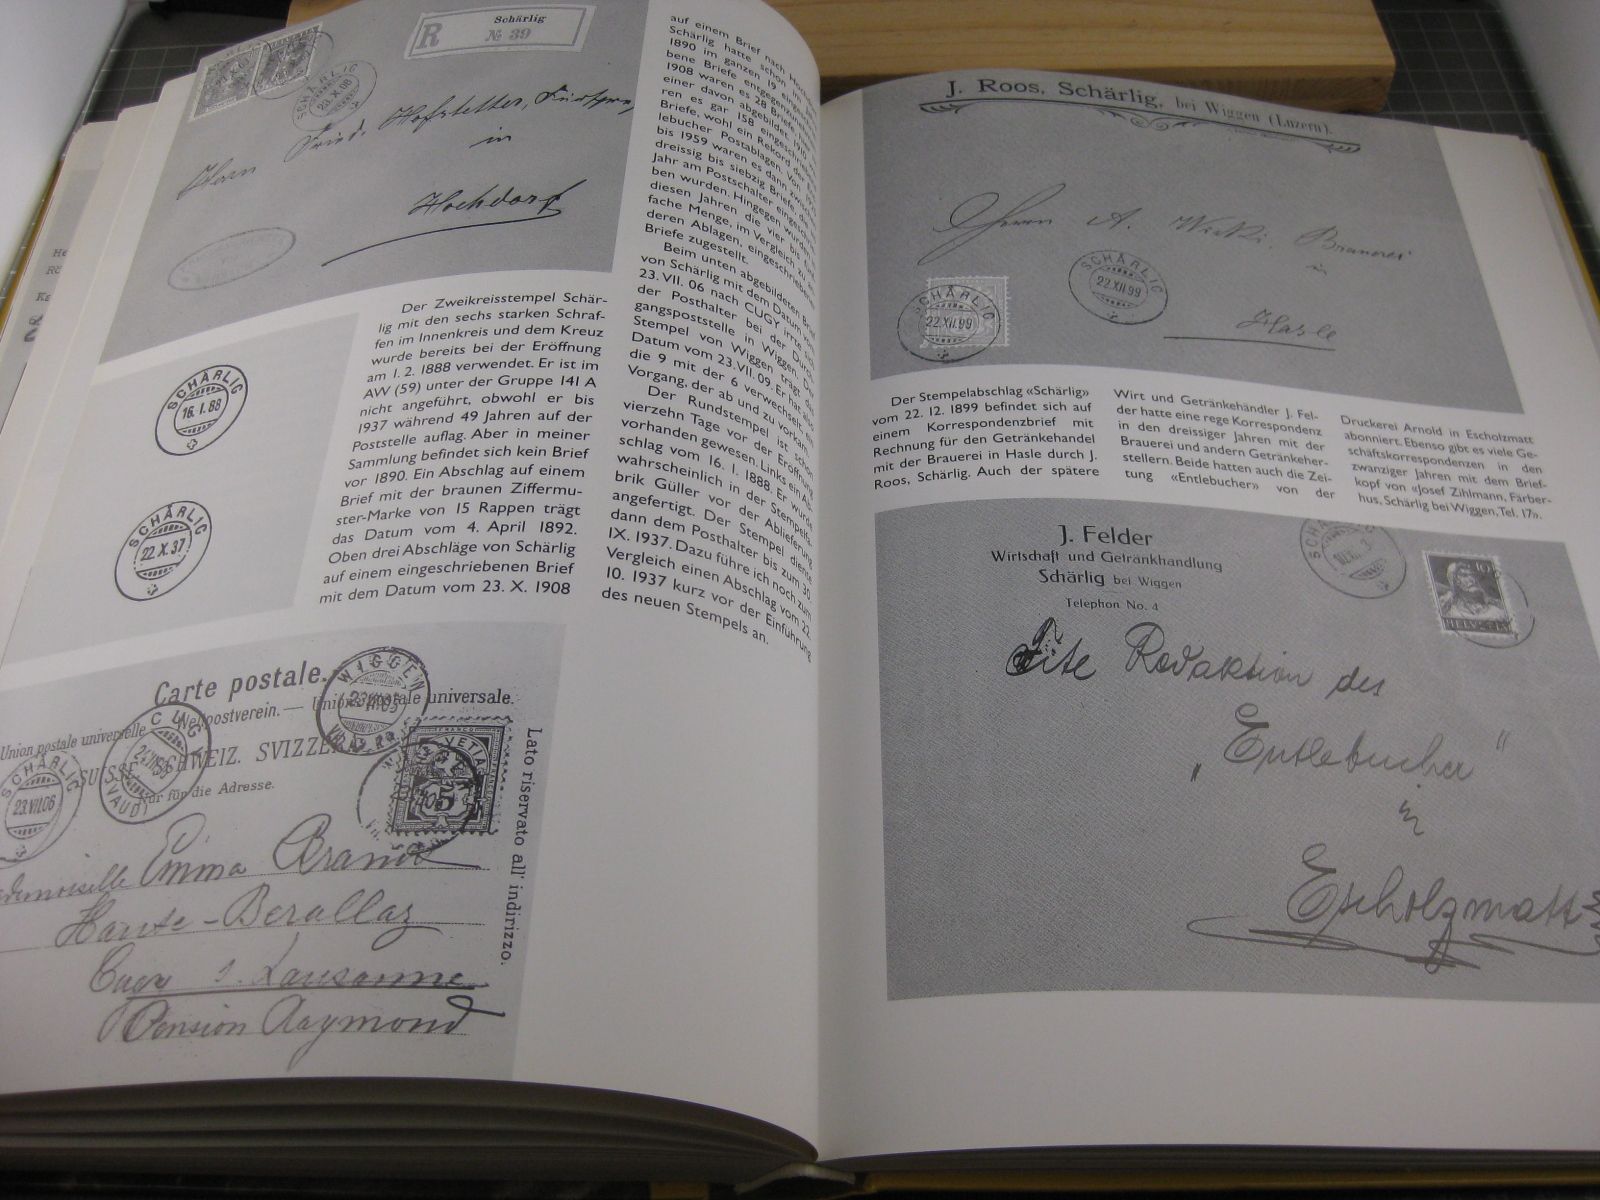 Schärlig
R № 39
SCHÄRLIG
23.X.08
Herrn Fried. Hofstetter,
in
Hochdorf
Der Zweikreisstempel Schär-
lig mit den sechs starken Schraf-
fen im Innenkreis und dem Kreuz
wurde bereits bei der Eröffnung
am 1. 2. 1888 verwendet. Er ist im
AW (59) unter der Gruppe 141 A
nicht angeführt, obwohl er bis
1937 während 49 Jahren auf der
Poststelle auflag. Aber in meiner
Sammlung befindet sich kein Brief
vor 1890. Ein Abschlag auf einem
Brief mit der braunen Ziffermu-
ster-Marke von 15 Rappen trägt
das Datum vom 4. April 1892.
Oben drei Abschläge von Schärlig
auf einem eingeschriebenen Brief
mit dem Datum vom 23. X. 1908
SCHÄRLIG
16.I.88
SCHÄRLIG
22.X.37
auf einem Brief nach
Schärlig hatte schon im
1890 im ganzen 19
bene Briefe entgegenzunehmen
1908 waren es 28 Briefe,
einer davon abgebildet. 1910
ren es gar 158 eingeschriebene
Briefe, wohl ein Rekord der
lebucher Postablagen. Von
bis 1959 waren es dann zwischen
dreissig bis siebzig Briefe, die
Jahr am Postschalter eingeschrie-
ben wurden. Hingegen wurden in
diesen Jahren die vier bis
fache Menge, im Vergleich zu an-
deren Ablagen, eingeschriebener
Briefe zugestellt.
Beim unten abgebildeten Brief
von Schärlig mit dem Datum vom
23. VII. 06 nach CUGY irrte sich
der Posthalter bei der Durch-
gangspoststelle in Wiggen. Der
Stempel von Wiggen trägt das
Datum vom 23. VII. 09. Er hat also
die 9 mit der 6 verwechselt, ein
Vorgang, der ab und zu vorkam.
Der Rundstempel ist schon
vierzehn Tage vor der Eröffnung
vorhanden gewesen. Links ein Ab-
schlag vom 16. 1. 1888. Er wurde
wahrscheinlich in der Stempelfa-
brik Güller vor der Ablieferung
angefertigt. Der Stempel diente
dann dem Posthalter bis zum 30.
IX. 1937. Dazu führe ich noch zum
Vergleich einen Abschlag vom 22.
10. 1937 kurz vor der Einführung
des neuen Stempels an.
Carte postale.
Weltpostverein. — Union postale universelle.
Union postale universelle
SUISSE. SCHWEIZ. SVIZZERA.
Nur für die Adresse.
Lato riservato all' indirizzo.
WIGGEN
CUGY
(VAUD)
SCHÄRLIG
23.VII.06
HELVETIA
5
Emma
Lausanne
Pension Raymond
J. Roos, Schärlig, bei Wiggen (Luzern).
Herrn A. Brauerei
in
Hasle
SCHÄRLIG
22.XII.99
SCHÄRLIG
22.XII.99
Der Stempelabschlag «Schärlig»
vom 22. 12. 1899 befindet sich auf
einem Korrespondenzbrief mit
Rechnung für den Getränkehandel
mit der Brauerei in Hasle durch J.
Roos, Schärlig. Auch der spätere
Wirt und Getränkehändler J. Fel-
der hatte eine rege Korrespondenz
in den dreissiger Jahren mit der
Brauerei und andern Getränkeher-
stellern. Beide hatten auch die Zei-
tung «Entlebucher» von der
Druckerei Arnold in Escholzmatt
abonniert. Ebenso gibt es viele Ge-
schäftskorrespondenzen in den
zwanziger Jahren mit dem Brief-
kopf von «Josef Zihlmann, Färber-
hus, Schärlig bei Wiggen, Tel. 17».
J. Felder
Wirtschaft und Getränkhandlung
Schärlig bei Wiggen
Telephon No. 4
10
HELVETIA
Redaktion des
„Entlebucher"
in
Escholzmatt